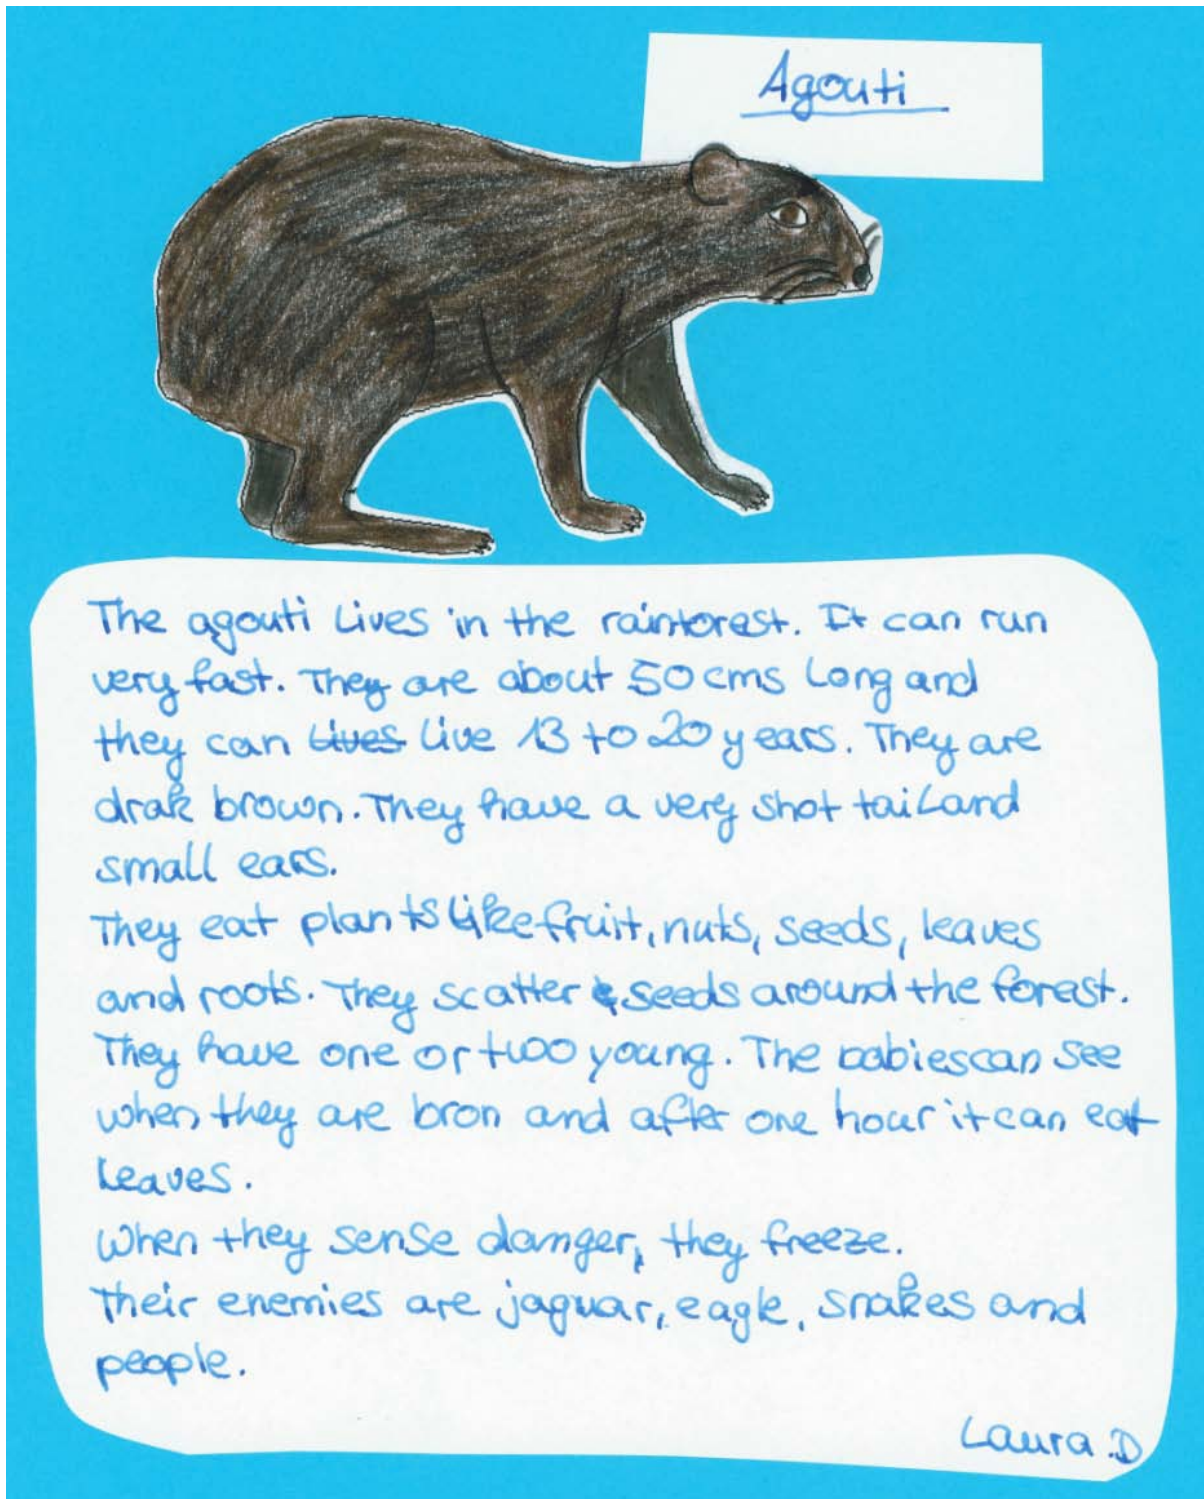 Agouti
The agouti lives in the rainforest. It can run
very fast. They are about 50 cms long and
they can lives live 13 to 20 years. They are
drak brown. They have a very shot tail and
small ears.
They eat plants like fruit, nuts, seeds, leaves
and roots. They scatter seeds around the forest.
They have one or two young. The babies can see
when they are bron and after one hour it can eat
leaves.
When they sense danger, they freeze.
Their enemies are jaguar, eagle, snakes and
people.
Laura.D